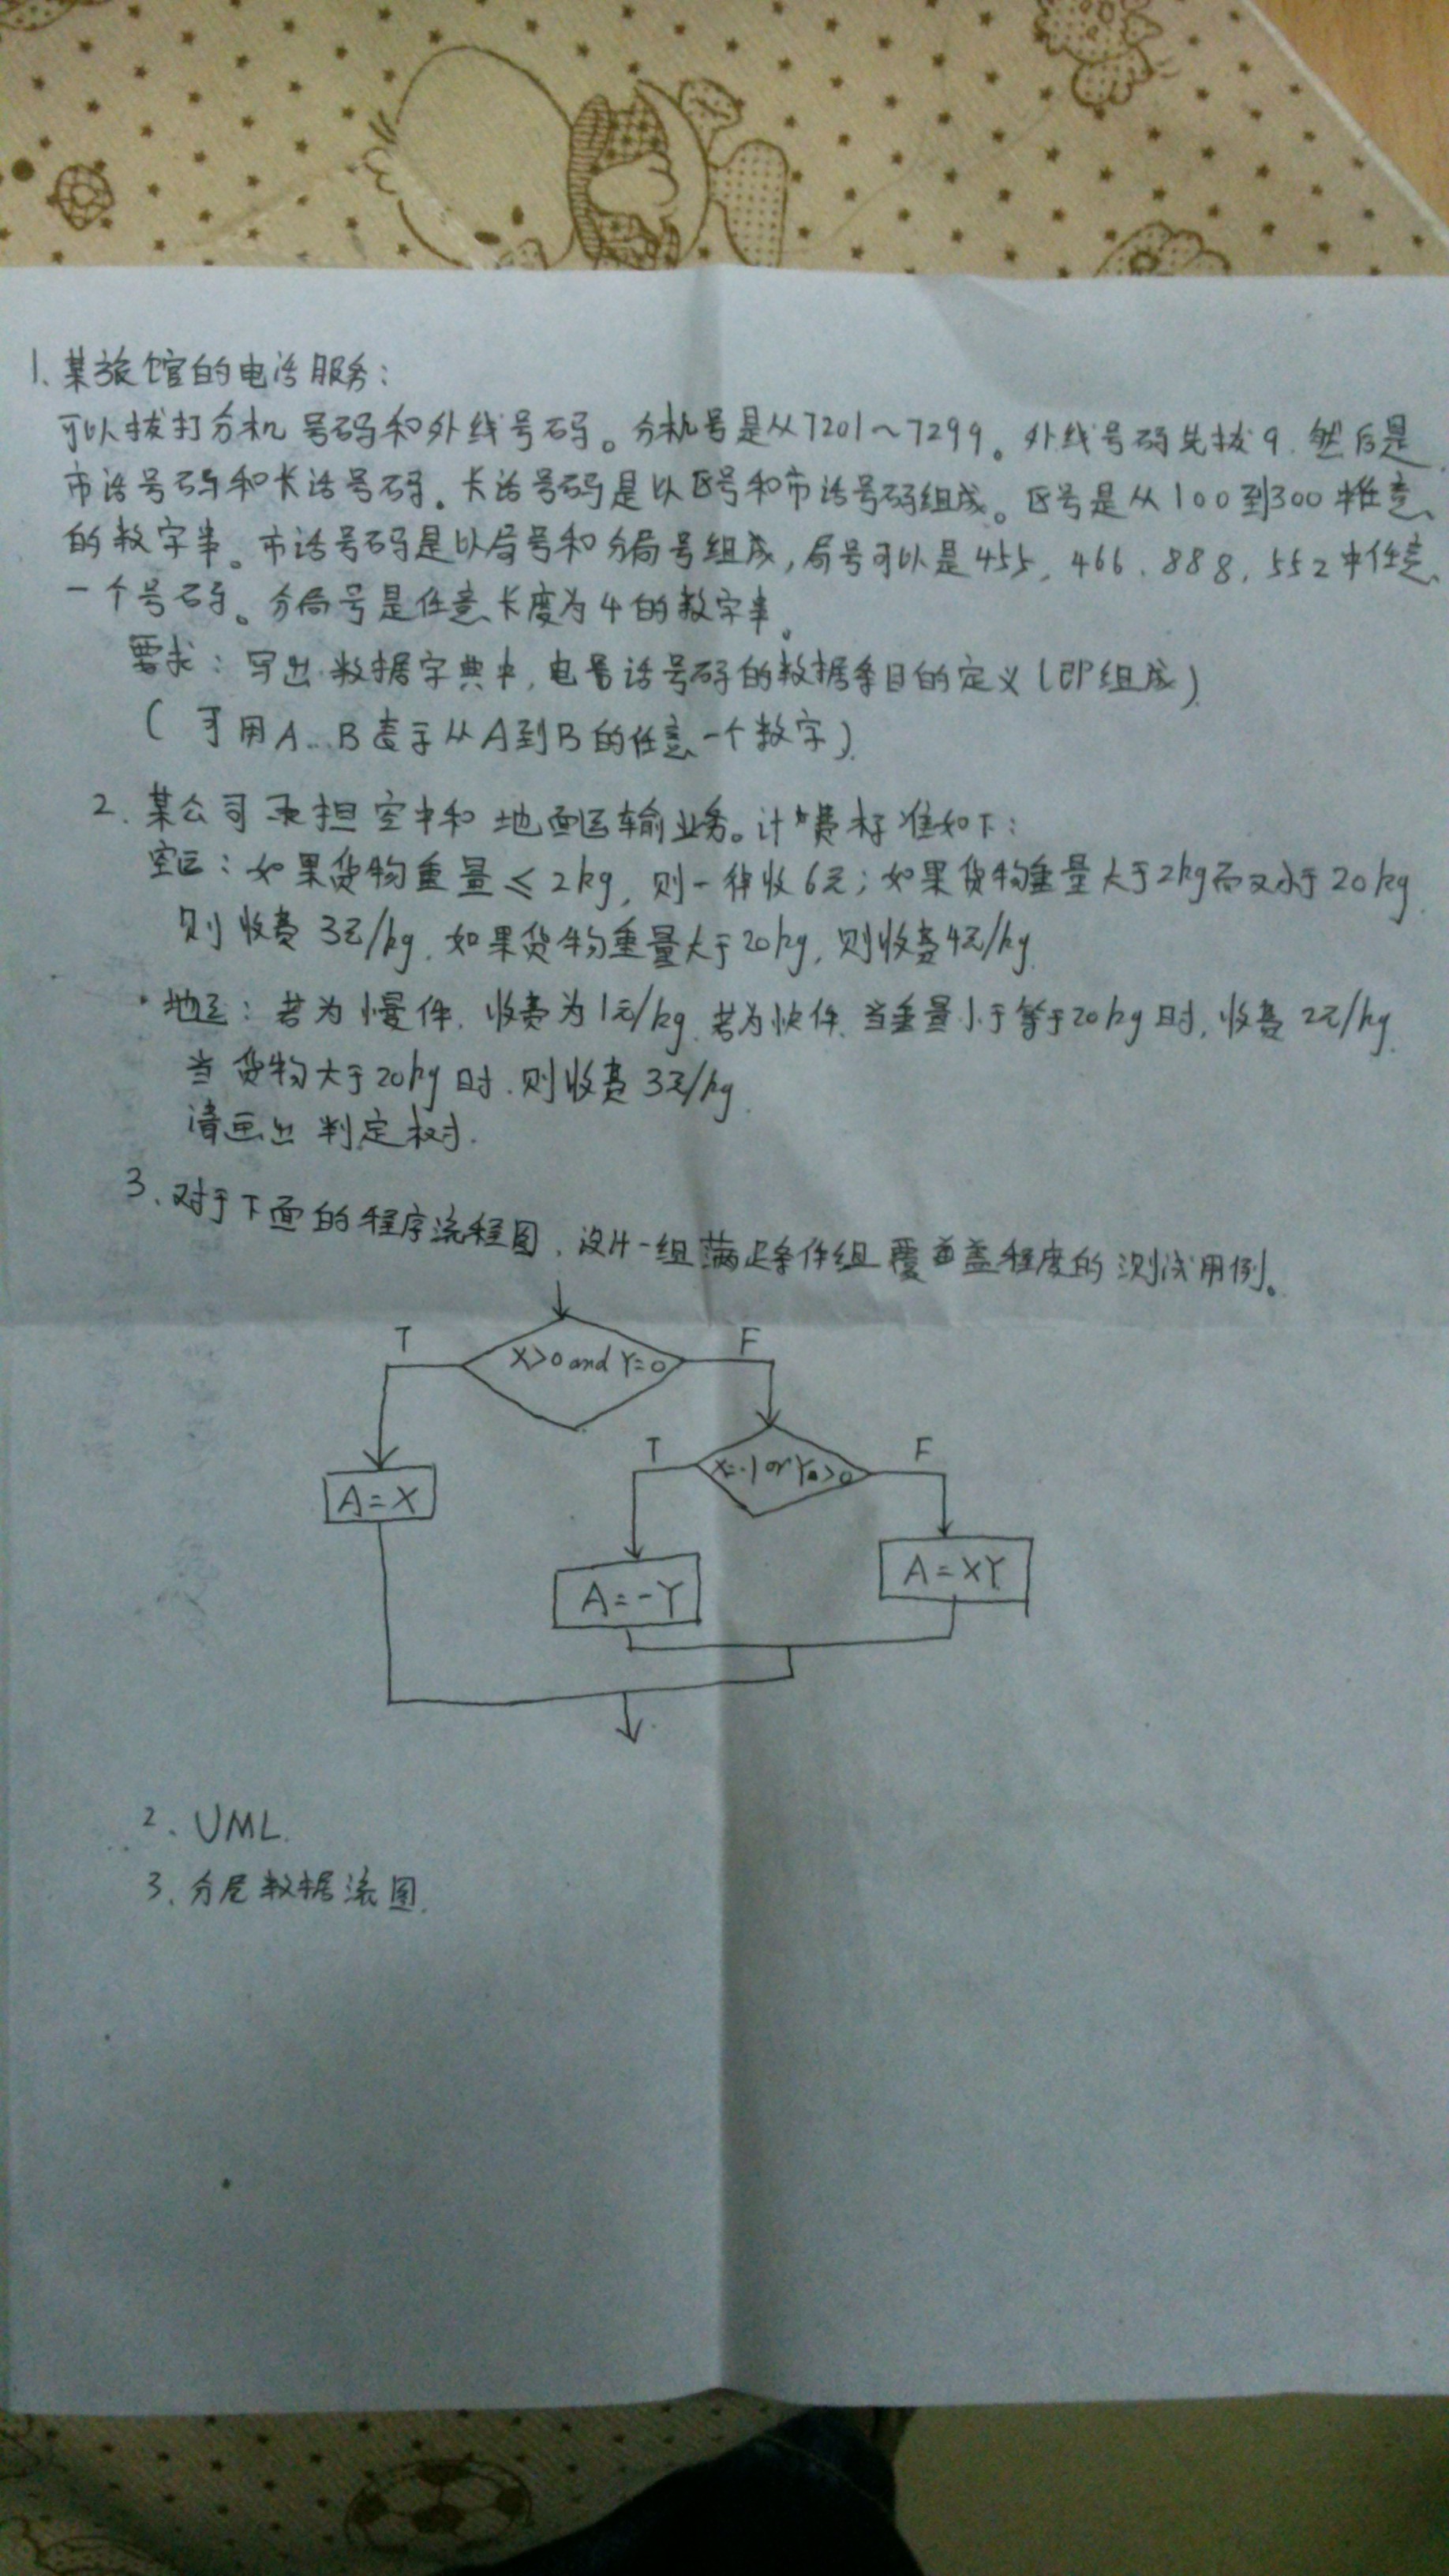 1、某旅馆的电话服务：
可以拔打分机号码和外线号码。分机号是从7201～7299。外线号码先拔9.然后是
市话号码和长话号码.长话号码是以区号和市话号码组成。区号是从100到300中任意
的数字串。市话号码是以局号和分局号组成,局号可以是455,466、888,552中任意
一个号码。分局号是任意长度为4的数字串.
要求：写出数据字典中,电话号码的数据条目的定义(即组成)
(可用A…B表示从A到B的任意一个数字)
2、某公司承担空中和地面运输业务。计费标准如下：
空运：如果货物重量≤2kg,则一律收6元；如果货物重量大于2kg而又小于20kg
则收费3元/kg.如果货物重量大于20kg,则收费4元/kg
地运：若为慢件.收费为1元/kg.若为快件.当重量小于等于20kg时,收费2元/kg
当货物大于20kg时.则收费3元/kg
请画出判定树.
3、对于下面的程序流程图、设计一组满足条件组覆盖程度的测试用例。
T X>0 and Y=0 F
T X=-1 or Y>0 F
A=X
A=-Y A=XY
2、UML.
3、分层数据流图.